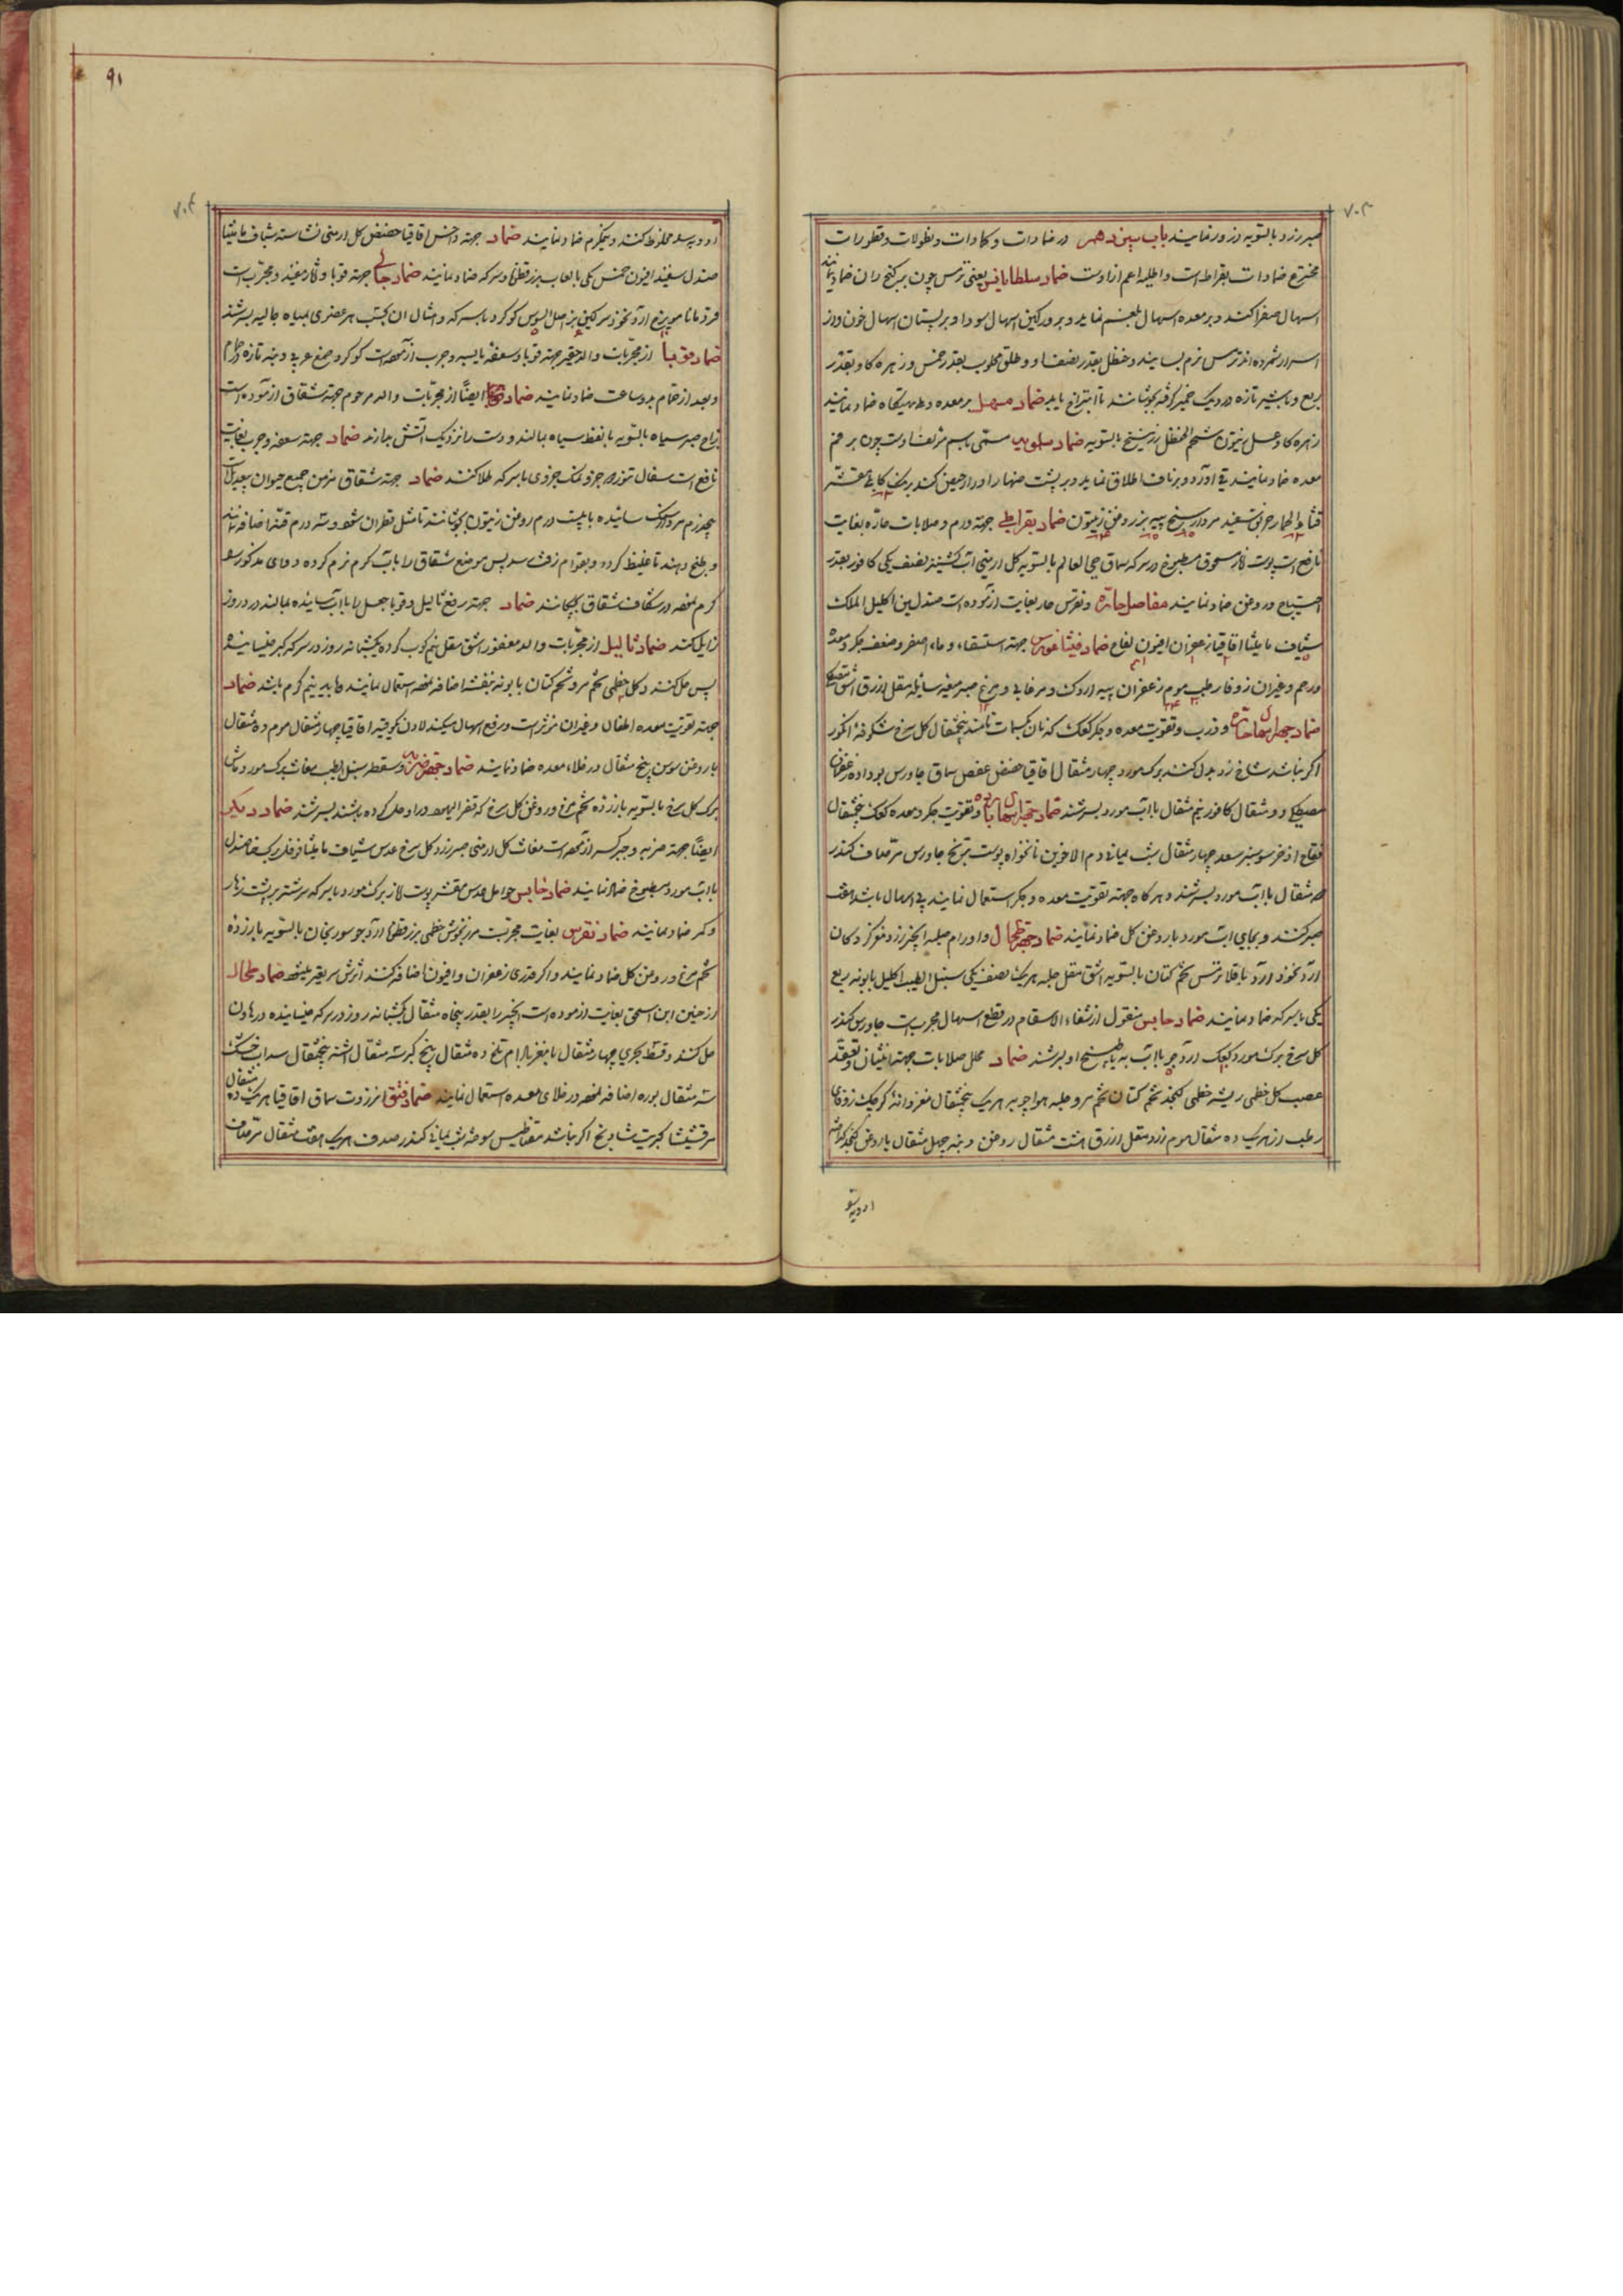 ۷۰۳
صبر زرد بالسویه ذرور نمایند باب سیزدهم در ضمادات و کمادات و نطولات و قطورات
مخترع ضمادات بقراطست و اطلیه اعم ازاوست ضماد سلطانافیس یعنی ترس چون بر کنج ران ضماد نمایند
اسهال صفرا کند و بر معده اسهال بلغم نماید و بر ورکین اسهال سودا و بر پستان اسهال خون و از
اسرار شمرده اند ترمس نرم بسایند و حنظل بقدر نصف او و علق محلوب بقدر خمس و زهره کاو بقدر
ربع و با شیر تازه در دیک خمیر گرفته بجوشانند تا امتزاج یابد ضماد مسهل بر معده و تهیگاه ضماد نمایند
زهره کاو عسل زیتون شحم الحنظل زرنیخ بالسویه ضماد سلویه مسمّی باسم مؤلف اوست چون بر فم
معده ضماد نمایند قی آورد و بر ناف اطلاق نماید و بر پشت ضهار ادرار حیض کند برنک کابلی مقشر
قثاء الحمار خربق سفید مردارسنج پیه بز روغن زیتون ضماد بقراطی جهته ورم و صلابات حاره بغایت
نافع است پوست انار مسحوق مطبوخ در سرکه سماق حی العالم بالسویه کل ارمنی آب کشنیز نصف یکی کافور بقدر
احتیاج در روغن ضماد نمایند مفاصل حارّه و نقرس حار بغایت آزموده است صندلین اکلیل الملک
شیاف مامیثا اقاقیا زعفران افیون لفاح ضماد فیثاغورس جهته استسقاء و ماء اصفر و ضعف جکر و معده
و رحم و غیر آن زوفا رطب موم زعفران پیه اردک و مرغابی و مرغ صبر میعه سایله مقل ازرق اشق مصطکی
ضماد جهة اسهال حارّه و ذرب و تقویت معده و جکر کعک که نان کسمات نامند پنجمثقال کل سرخ شکوفه انکور
اکر نباشد شاخ زرد بدل کنند برک مورد چهار مثقال اقاقیا حضض عفص سماق جاورس بو داده زعفران
مصطکی دو مثقال کافور نیم مثقال با آب مورد بسرشند ضماد جهة اسهال بارده و تقویت جکر و معده کعک پنجمثقال
فقاح اذخر سوسنبر سعد چهار مثقال شب یمانی دم الاخوین نانخواه پوست ترنج جاورس مرّ صاف کندر
سه مثقال با آب مورد بسرشند و هر گاه جهته تقویت معده و جکر استعمال نمایند بی اسهال باشد اضافه
صبر کنند و بجای آب مورد با روغن کل ضماد نمایند ضماد جهة طحال و اورام صلبه انجیر زرد مغز گردکان
آرد نخود آرد باقلا ترمس تخم کتان بالسویه اشق مقل حلبه هریک نصف یکی سنبل الطیب اکلیل بابونه ربع
یکی با سرکه ضماد نمایند ضماد حابس منقول از شفاء الاسقام در قطع اسهال مجربست جاورس کندر
کل سرخ برک مورد کعک آرد جو با آب به یا طبیخ او بسرشند ضماد محلل صلابات جهته انثیان و تعقد
عصب کل خطمی ریشه خطمی کنجد تخم کتان تخم مرو حلبه هواجوبه هریک پنجمثقال مغز دانه کرجک زوفای
رطب از هریک ده مثقال موم زرد مقل ازرق هشت مثقال روغن دنبه چهل مثقال با روغن کنجد گداخته
ادویه سو
۹۱
۷۰۴
ادویه سوده مخلوط کنند و نیمگرم ضماد نمایند ضماد جهته داخس اقاقیا حضض کل ارمنی نشاسته شیاف مامیثا
صندل سفید افیون خمس یکی با لعاب بزرقطونا و سرکه ضماد نمایند ضماد جالی جهته قوبا و آثار مفید و مجربست
قردمانا مویزج آرد نخود سرکین بز اصل السوس کوکرد با سرکه و امثال آن بحسب هر عضری بمیاه جالیه بسرشند
ضماد قوبا از مجرّبات والد حقیر جهته قوبا و سعفه یابسه و جرب آزموده است کوکرد صمغ عربی دنبه تازه در حمام
و بعد از حمام بدو ساعت ضماد نمایند ضماد ایضاً از مجرّبات والد مرحوم جهته شقاق آزموده است
زاج صبر سیاه بالسویه با نفط سیاه بمالند و دست را نزدیک آتش بدارند ضماد جهته سعفه و جرب بغایت
نافع است سفال تنور ده جزو نمک جزوی با سرکه طلا کنند ضماد جهته شقاق مزمن جمیع حیوان بیعدیل است
پنجدرم مرداسنک سائیده با بیست درم روغن زیتون بجوشانند تا مثل قطران شود و سه درم قنّه اضافه نمایند
و بطبخ دهند تا غلیظ گردد و بقوام زفت رسد پس موضع شقاق را با آب گرم نرم کرده دوای مذکور را
گرم نموده در شکاف شقاق بچکانند ضماد جهته رفع ثالیل و قوبا جعل را با آب سائیده بمالند در دو روز
زایل کند ضماد ثالیل از مجرّبات والد مغفور اشق مقل نیم کوب کرده یکشبانه روز در سرکه کبر خیسانیده
پس حل کنند و کل خطمی تخم مرو تخم کتان بابونه بنفشه اضافه نموده استعمال نمایند و باید نیم گرم باشد ضماد
جهته تقویت معده اطفال و غیر آن مؤثر است و رفع اسهال میکند لادن یکوقیه اقاقیا چهار مثقال موم ده مثقال
با روغن سوسن پنج مثقال در خلاء معده ضماد نمایند ضماد جهة ضربه و سقطه سنبل الطیب مغاث برک مورد ماش
برک کل سرخ بالسویه با زرده تخم مرغ و روغن کل سرخ که قفر الیهود در او حل کرده باشند بسرشند ضماد دیکر
ایضاً جهته ضربه و جبر کسر آزموده است مغاث کل ارمنی صبر زرد کل سرخ عدس شیاف مامیثا فوفل برک حنا صندل
با آب مورد مطبوخ ضماد نمایند ضماد حابس حوامل عدس مقشر پوست انار برک مورد با سرکه سرشته بر پشت زهار
و کمر ضماد نمایند ضماد نقرس بغایت مجربست مرزنجوش خطمی بزرقطونا آرد جو سورنجان بالسویه با زرده
تخم مرغ و روغن کل ضماد نمایند و اگر قدری زعفران و افیون اضافه کنند اثرش سریعتر میشود ضماد طحال
از حنین ابن اسحق بغایت آزموده است انجیر را بقدر پنجاه مثقال یکشبانه روز در سرکه خیسانیده در هاون
حل کنند و قسط بحری چهار مثقال با مغز بادام تلخ ده مثقال بیخ کبر سه مثقال اشنه پنجمثقال سداب خشک
سه مثقال بوره اضافه نموده در خلای معده استعمال نمایند ضماد فتق انزروت سماق اقاقیا هریک ده مثقال
مرقشیشا کبریت شادنج اگر نباشد مغناطیس سوخته شب یمانی کندر صدف هریک هفت مثقال مرّ صاف